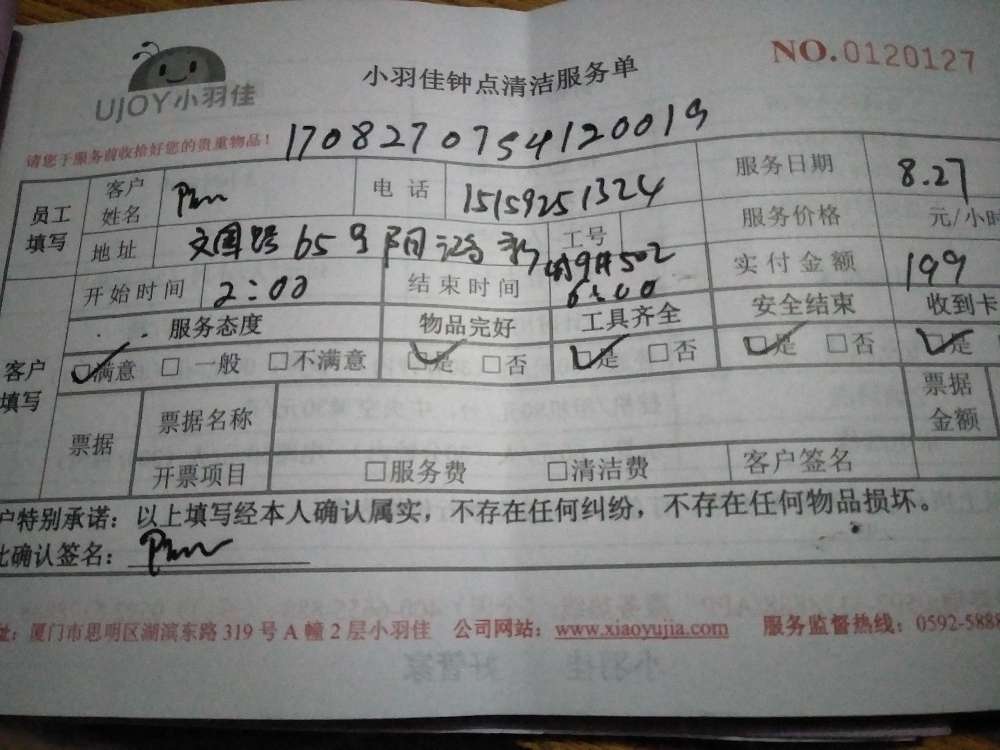 UJOY小羽佳
小羽佳钟点清洁服务单
NO.0120127
请您于服务前收拾好您的贵重物品！
1708270754120019
员工填写 客户姓名 电话 15159251324 服务日期 8.27
地址 文园路65号 工号 服务价格 元/小时
9#502
开始时间 2:00 结束时间 6:00 实付金额 199
客户填写 服务态度 物品完好 工具齐全 安全结束 收到卡
☑满意 □一般 □不满意 ☑是 □否 ☑是 □否 ☑是 □否 ☑是
票据 票据名称 票据金额
开票项目 □服务费 □清洁费 客户签名
户特别承诺：以上填写经本人确认属实，不存在任何纠纷，不存在任何物品损坏。
此确认签名：
址：厦门市思明区湖滨东路319号A幢2层小羽佳 公司网站：www.xiaoyujia.com 服务监督热线：0592-5888